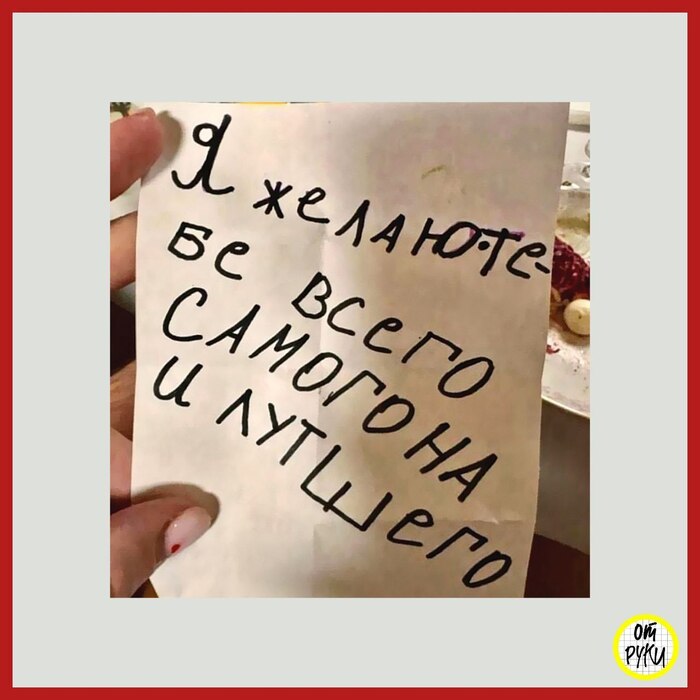 Я желаю те-
бе всего
САМОГО НА
И ЛУТШего
от
РУКИ